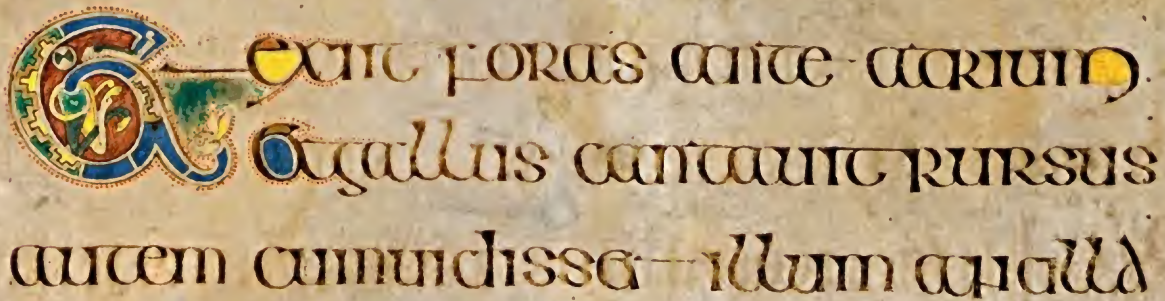 Et exiit foras ante atrium
Et gallus cantauit rursus
autem cumuidisset illum ancilla